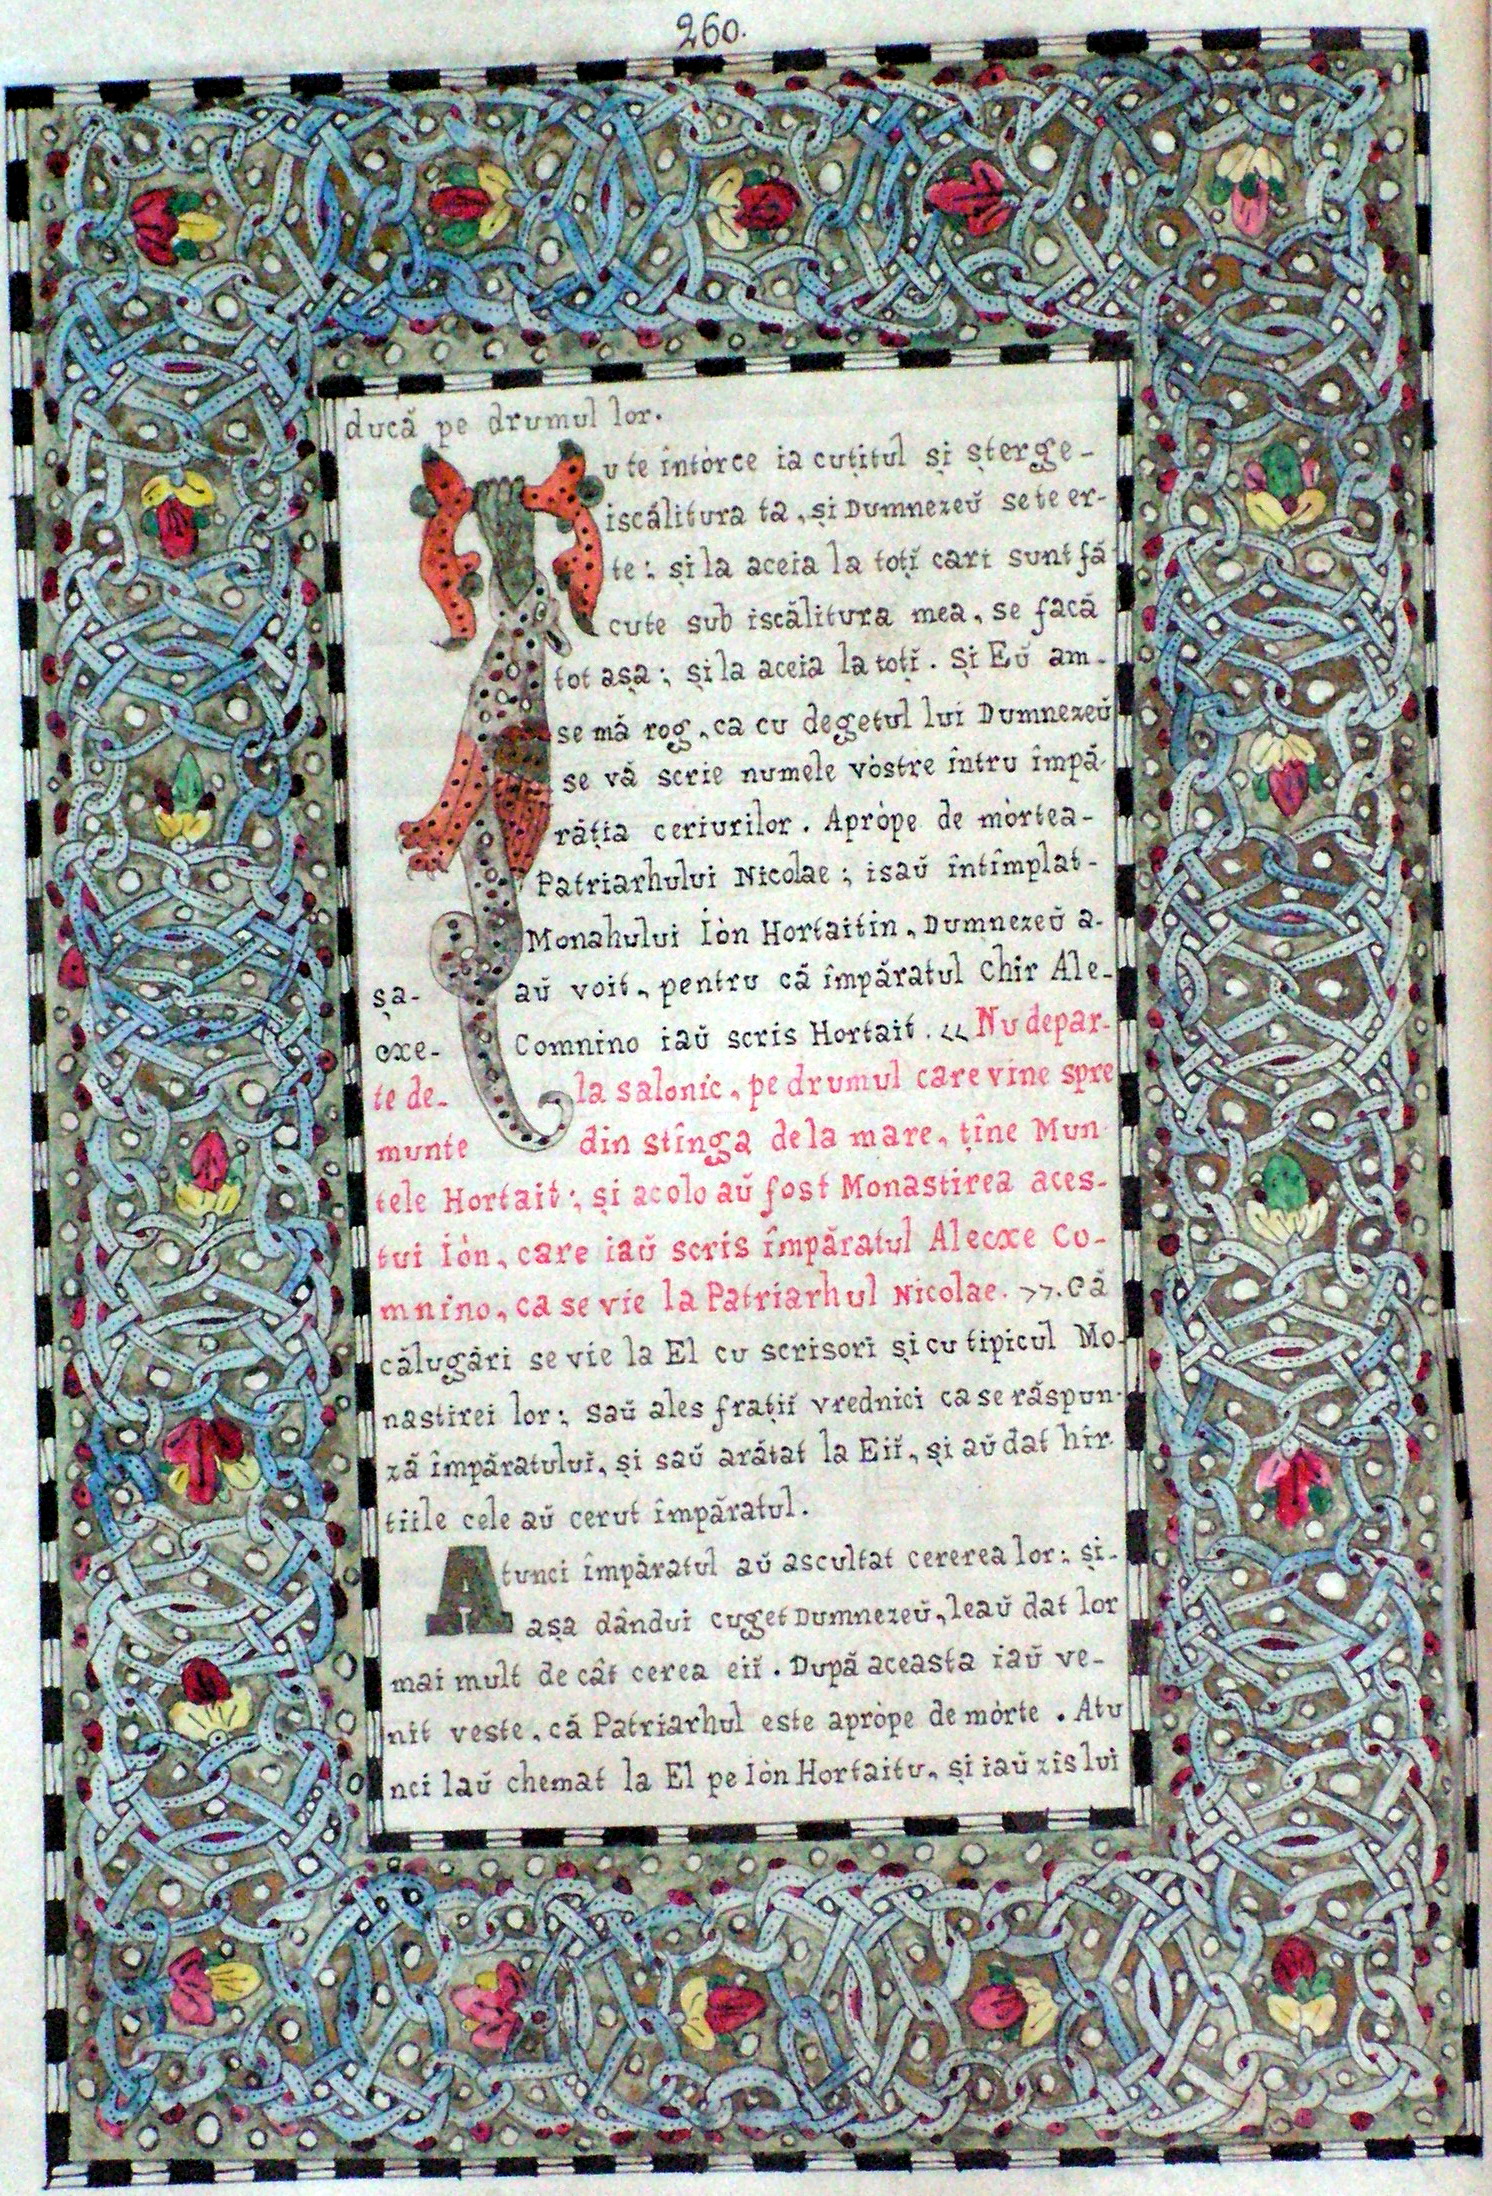 260.
ducă pe drumul lor.
Tu te întórce ia cuțitul și șterge-
iscălitura ta, și Dumnezeŭ se te er-
te; și la aceia la toțĭ cari sunt fă
cute sub iscălitura mea, se facă
tot așa; și la aceia la toțĭ. Și Eŭ am-
se mă rog, ca cu degetul lui Dumnezeŭ
se vă scrie numele vóstre întru împă-
răția ceriurilor. Aprópe de mórtea-
Patriarhului Nicolae; isaŭ întîmplat-
Monahului Ión Hortaitin, Dumnezeŭ a-
șa- aŭ voit, pentru că împăratul Chir Ale-
cxe- Comnino iaŭ scris Hortait. << Nu depar-
te de- la salonic, pe drumul care vine spre
munte din stînga de la mare, ține Mun-
tele Hortait; și acolo aŭ fost Monastirea aces-
tui Ión, care iaŭ scris împăratul Alecxe Co-
mnino, ca se vie la Patriarhul Nicolae. >>. Că
călugări se vie la El cu scrisori și cu tipicul Mo-
nastirei lor; saŭ ales frațiĭ vrednici ca se răspun-
ză împăratuluĭ, și saŭ arătat la Eiĭ, și aŭ dat hîr-
tiile cele aŭ cerut împăratul.
Atunci împăratul aŭ ascultat cererea lor; și-
așa dândui cuget Dumnezeŭ, leaŭ dat lor
mai mult de cât cerea eiĭ. După aceasta iaŭ ve-
nit veste, că Patriarhul este aprópe de mórte. Atu
nci laŭ chemat la El pe Ión Hortaitu, și iaŭ zis lui